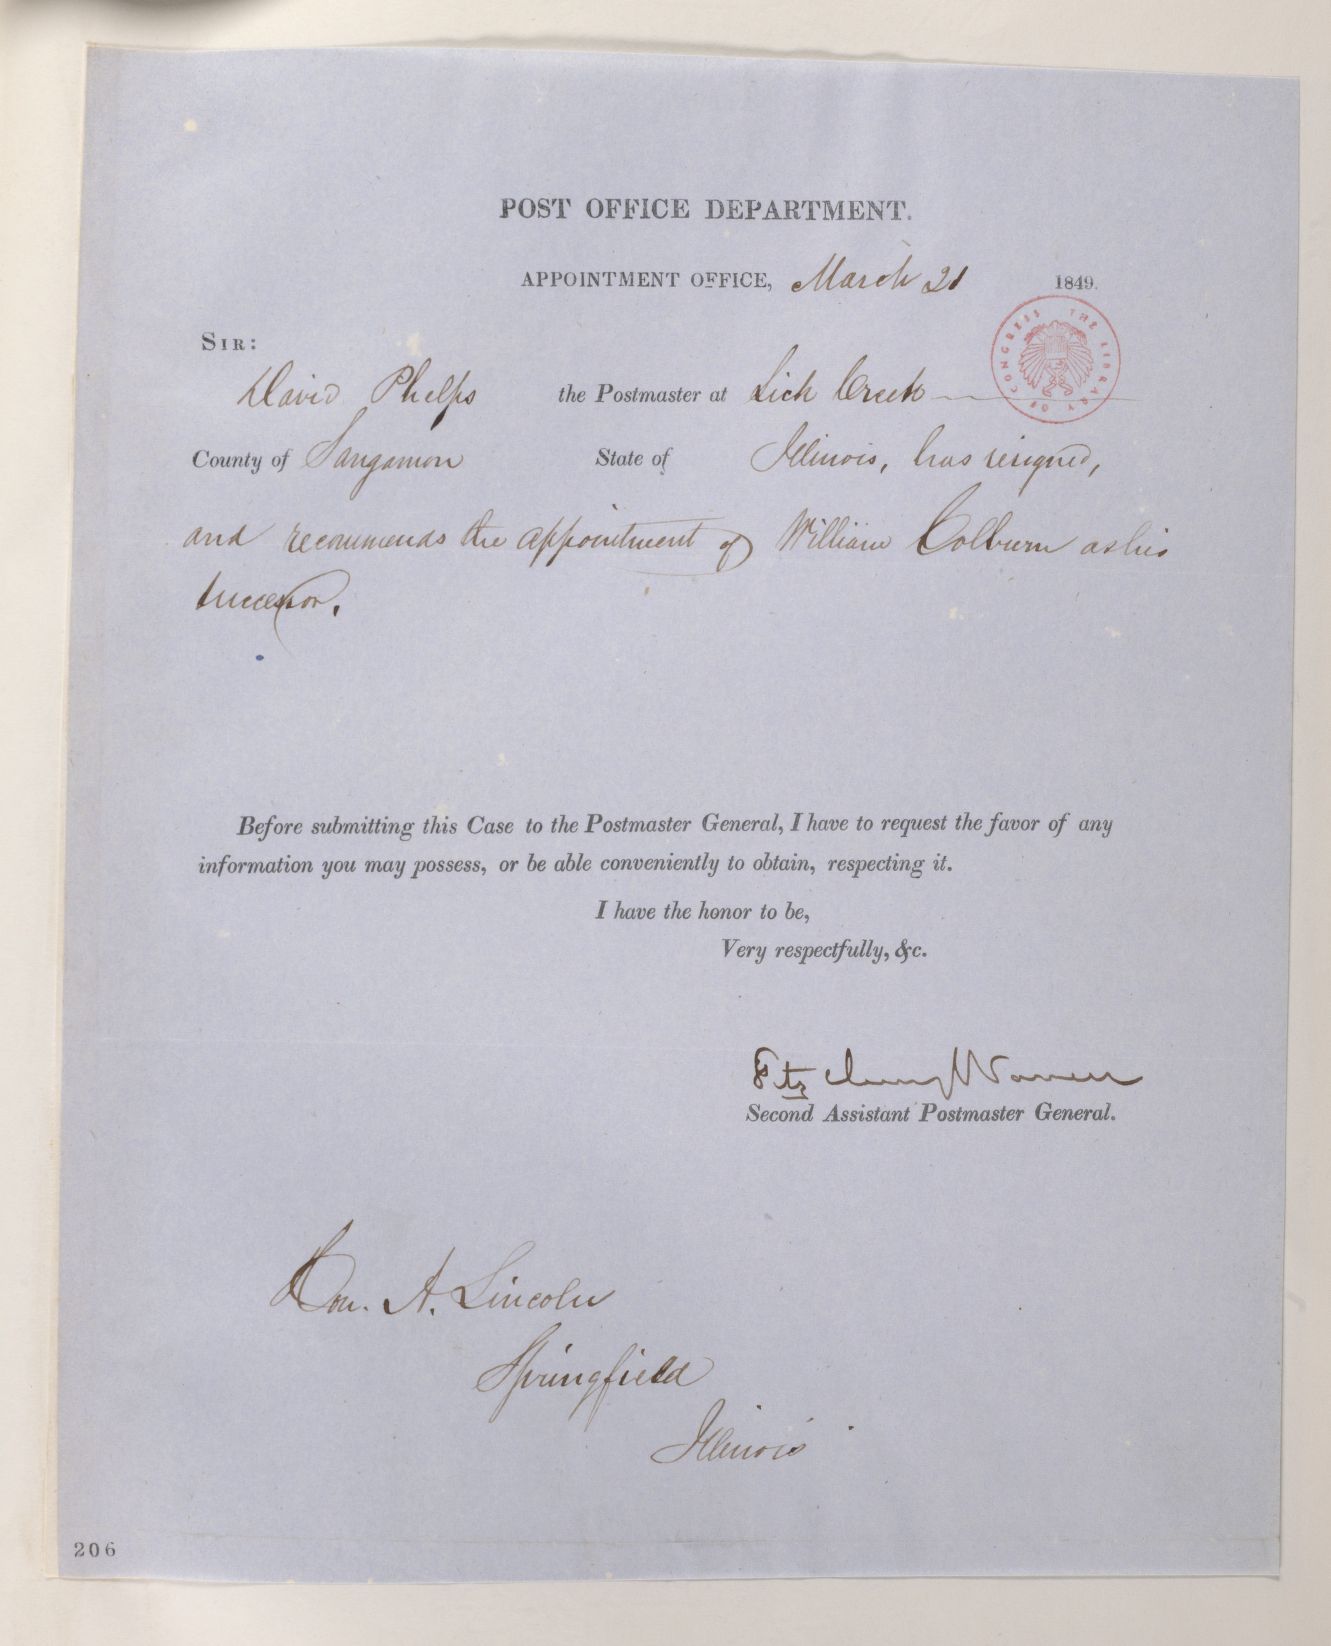 POST OFFICE DEPARTMENT.
APPOINTMENT OFFICE, March 21 1849.
THE LIBRARY OF CONGRESS
SIR:
David Phelps the Postmaster at Lick Creek
County of Sangamon State of Illinois, has resigned,
and recommends the appointment of William Colburn as his
successor.
Before submitting this Case to the Postmaster General, I have to request the favor of any
information you may possess, or be able conveniently to obtain, respecting it.
I have the honor to be,
Very respectfully, &c.
Fitz Henry Warren
Second Assistant Postmaster General.
Hon. A. Lincoln
Springfield
Illinois
206